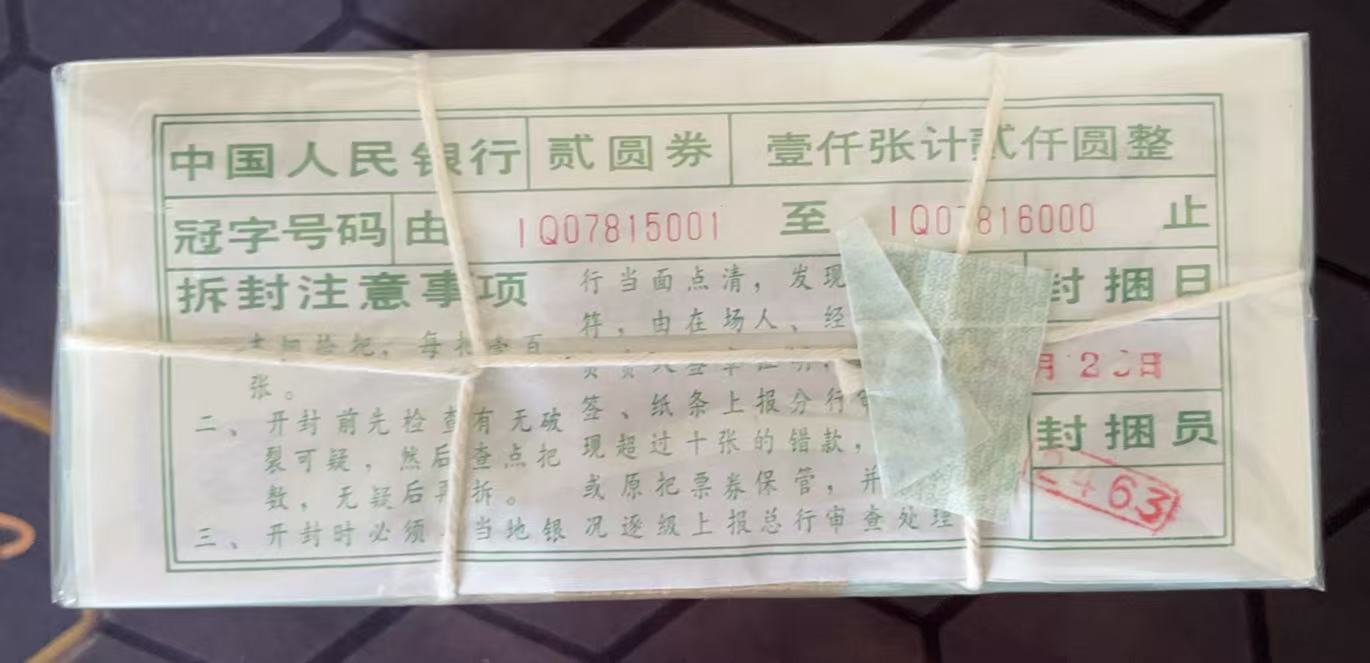 中国人民银行 贰圆券 壹仟张计贰仟圆整
冠字号码 由 IQ07815001 至 IQ07816000 止
拆封注意事项
张。
二、开封前先检查有无破
裂可疑，然后查点把
数，无疑后再拆。
三、开封时必须 当地银
行当面点清，发现
符，由在场人、经
签、纸条上报分行
现超过十张的错款，
或原把票券保管，并
况逐级上报总行审查处理
封捆日
月2 日
封捆员
63